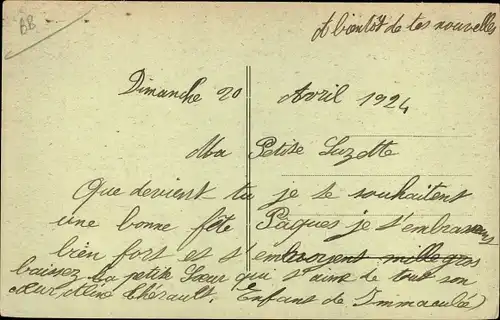 A bientôt de tes nouvelles
AB
Dimanche 20 Avril 1924
Ma Petite Suzette
Que devient tu je te souhaitent
une bonne fête Pâques je t'embrasses
bien fort et t'envoyent mille gros
baissez ta petite Sœur qui t'aime de tout son
cœur Aline Thérault. Enfant de Immaculée